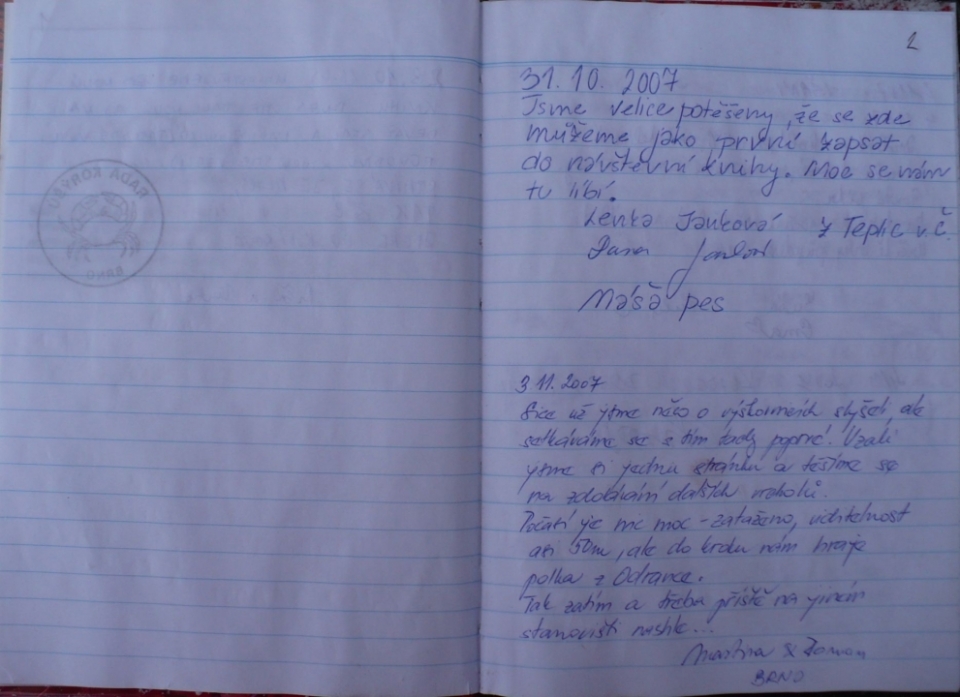 RADA KORÝŠŮ
BRNO
2
31. 10. 2007
Jsme velice potěšeny, že se zde
můžeme jako první zapsat
do návštěvní knihy. Moc se nám
tu líbí.
Lenka Janková z Teplic v.Č.
Máša pes
3 11. 2007
Sice už jsme něco o výškovnicích slyšeli ale
setkáváme se s tím tady poprvé. Vzali
jsme si jednu stránku a těšíme se
na zdolávání dalších vrcholů.
Počasí je nic moc - zataženo, viditelnost
asi 50m, ale do kroku nám hraje
polka z Odrance.
Tak zatím a třeba příště na jiném
stanovišti nashle...
Martina & Roman
BRNO